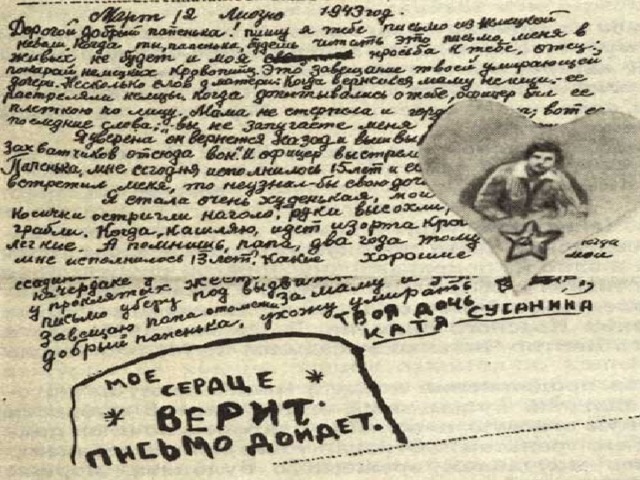 Март 12 Лиозно 1943 год.
Дорогой добрый папенька! пишу я тебе письмо из немецкой
неволи. Когда ты, папенька, будешь читать это письмо, меня в
живых не будет и моя просьба к тебе, отец:
покарай немецких кровопийц. Это завещание твоей умирающей
дочери. Несколько слов о матери. Когда вернешься, маму не ищи. ее
расстреляли немцы. Когда допытывались о тебе, офицер бил ее
плеткою по лицу. Мама не стерпела и гордо вот ее
последние слова: "вы не запугаете меня
Я уверена он вернется назад и вышвы
захватчиков отсюда вон. И офицер выстрел
Папенька, мне сегодня исполнилось 15 лет и ес
встретил меня, то неузнал-бы свою доч
Я стала очень худенькая, мои
Косички остригли наголо, руки высохли,
грабли. Когда кашляю, идет изорта кро
легкие. А помнишь, папа, два года тому когда
мне исполнилось 13 лет? Какие хорошие мои
на чердаке
у проклятых жест
письмо уберу под выдвин
Завещаю папа отомсти за маму и
добрый папенька, ухожу умирать
ТВОЯ ДОЧЬ
КАТЯ СУСАНИНА
МОЕ
СЕРДЦЕ
ВЕРИТ.
ПИСЬМО ДОЙДЕТ.